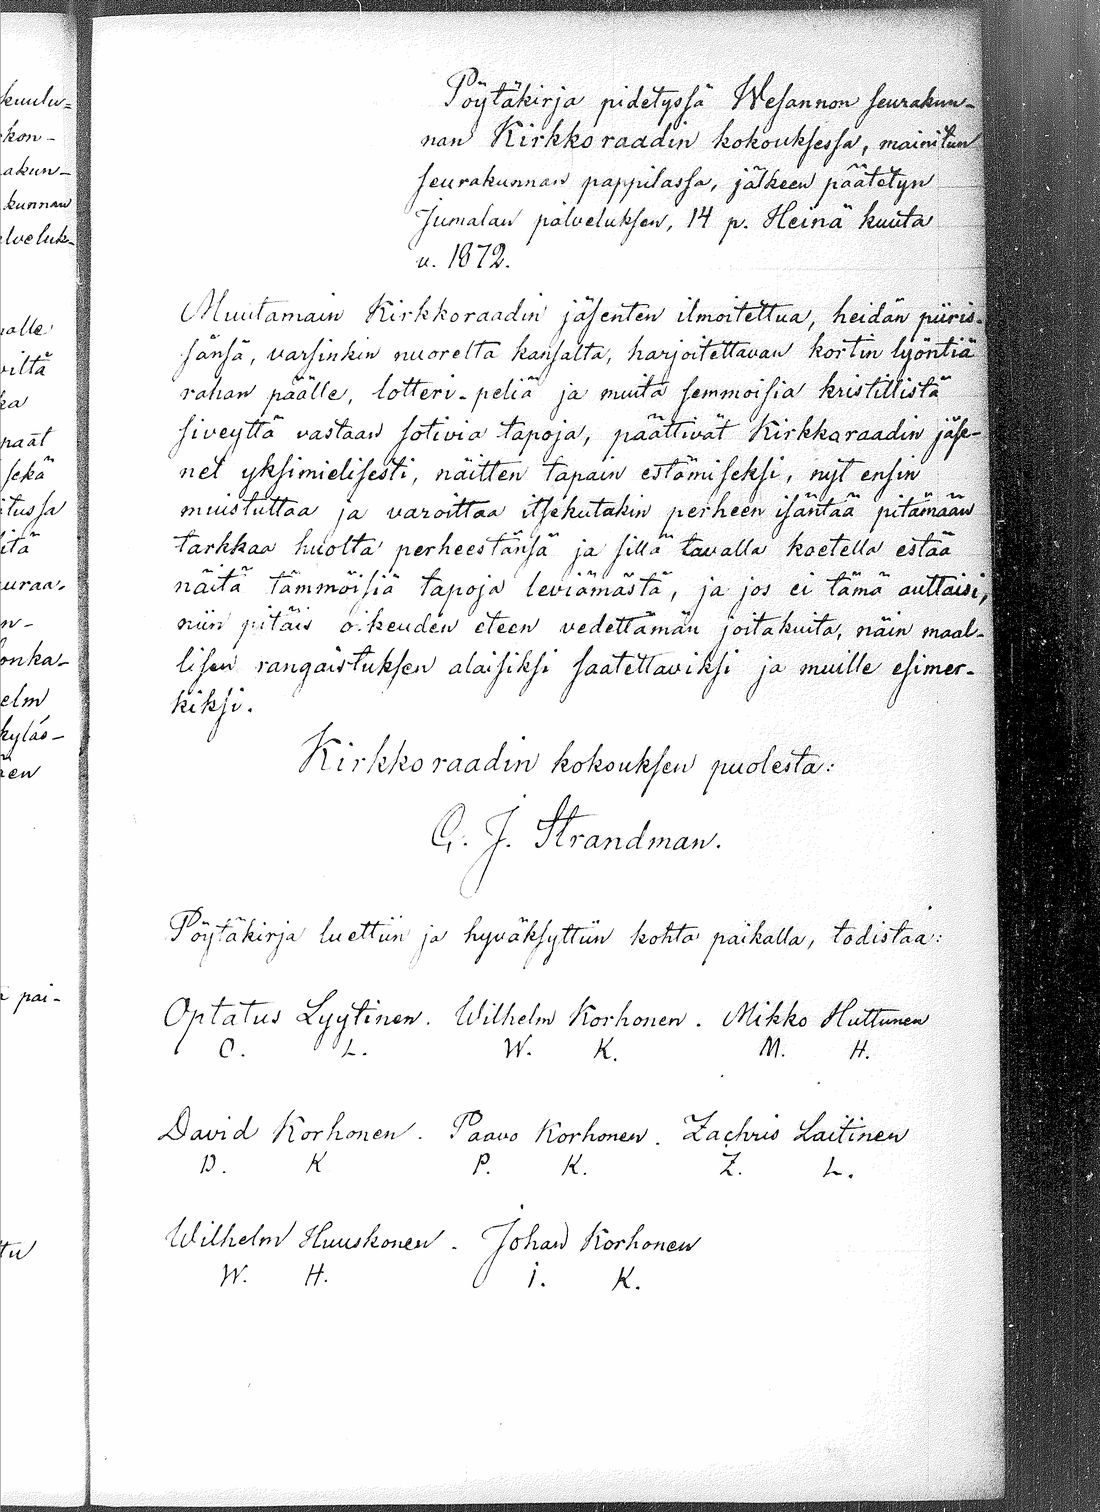 kuulu=
kon-
akun-
kunnan
lveluk-
alle
viltä
ka
paat
sekä
itussa
itä
uuraa-
n-
onka-
elm
kyläs-
nen
pai-
ttu
Pöytäkirja pidetyssä Wesannon seurakun-
nan Kirkkoraadin kokouksessa, mainitun
seurakunnan pappilassa, jälkeen päätetyn
Jumalan palveluksen, 14 p. Heinä kuuta
v. 1872.
Muutamain Kirkkoraadin jäsenten ilmoitettua, heidän piiris-
sänsä, varsinkin nuorelta kansalta, harjoitettavan kortin lyöntiä
rahan päälle, lotteri-peliä ja muita semmoisia kristillistä
siveyttä vastaan sotivia tapoja, päättivät Kirkkoraadin jäse-
net yksimielisesti, näitten tapain estämiseksi, nyt ensin
muistuttaa ja varoittaa itsekutakin perheen isäntää pitämään
tarkkaa huolta perheestänsä ja sillä tavalla koetella estää
näitä tämmöisiä tapoja leviämästä, ja jos ei tämä auttaisi,
niin pitäis oikeuden eteen vedettämän joitakuita, näin maal-
lisen rangaistuksen alaisiksi saatettaviksi ja muille esimer-
kiksi.
Kirkkoraadin kokouksen puolesta:
G. J. Strandman.
Pöytäkirja luettiin ja hyväksyttiin kohta paikalla, todistaa:
Optatus Lyytinen. Wilhelm Korhonen. Mikko Huttunen
O. L. W. K. M. H.
David Korhonen. Paavo Korhonen. Zachris Laitinen
D. K P. K. Z. L.
Wilhelm Huuskonen. Johan Korhonen
W. H. I. K.